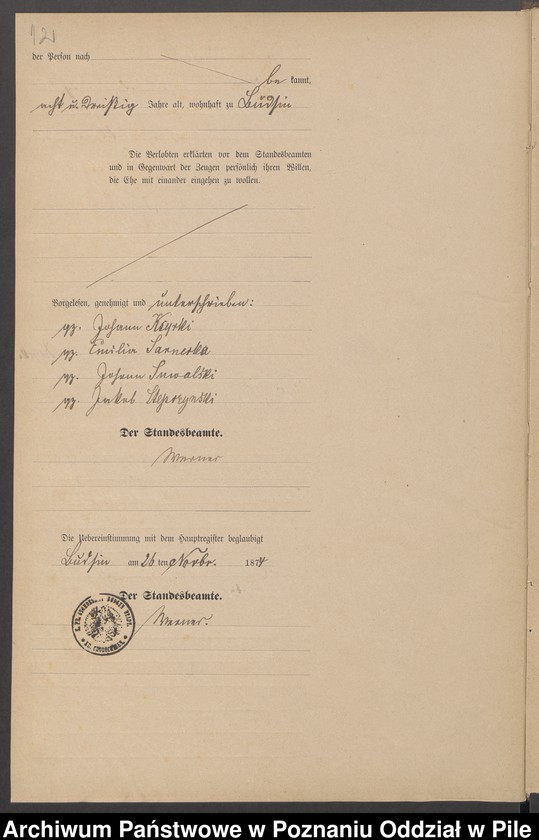 121
der Person nach
be kannt,
acht u. Dreißig Jahre alt, wohnhaft zu Budsin
Die Verlobten erklärten vor dem Standesbeamten
und in Gegenwart der Zeugen persönlich ihren Willen,
die Ehe mit einander eingehen zu wollen.
Vorgelesen, genehmigt und unterschrieben:
gz. Johann
gz. Emilia Sarnecka
gz. Johann Suwalski
gz. Jakob
Der Standesbeamte.
Werner
Die Uebereinstimmung mit dem Hauptregister beglaubigt
Budsin am 26 ten Novbr. 1874
Der Standesbeamte.
Werner.
Archiwum Państwowe w Poznaniu Oddział w Pile